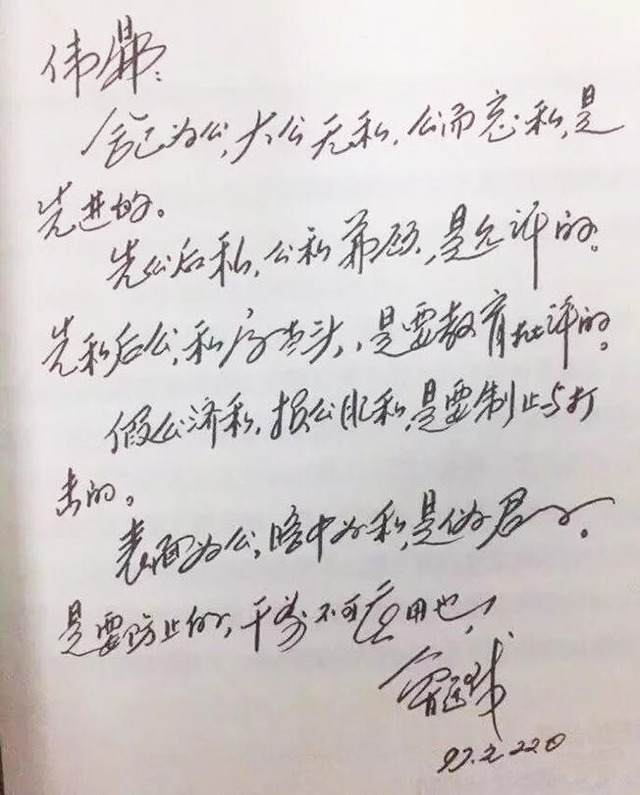 伟鼎:
舍己为公,大公无私.公而忘私,是
先进的。
先公后私,公私兼顾,是允许的。
先私后公,私字当头,是要教育批评的。
假公济私,损公肥私,是要制止与打
击的。
表面为公,暗中为私,是伪君子。
是要防止的,千万不可应用也,
97.2.22日